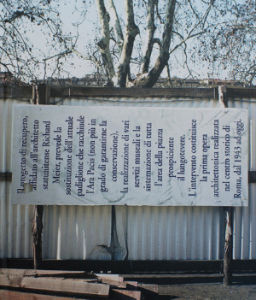 Il progetto di recupero,
affidato all'architetto
statunitense Richard
Meier, prevede la
sostituzione dell'attuale
padiglione che racchiude
l'Ara Pacis (non più in
grado di garantirne la
conservazione),
la realizzazione di vari
servizi museali e la
sistemazione di tutta
l'area della piazza
prospiciente
il lungotevere.
L'intervento costituisce
la prima opera
architettonica realizzata
nel centro storico di
Roma dal 1943 ad oggi.